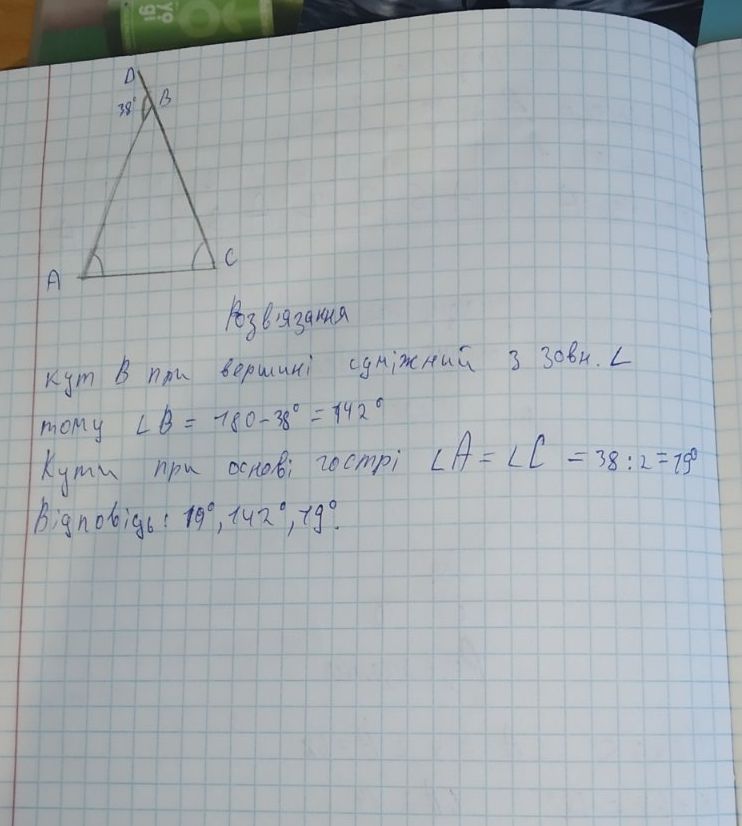 yo
gi
D
38°
B
A
C
Розв'язання
кут В при вершині суміжний з зовн. ∠
тому ∠B = 180-38° = 142°
Кути при основі гострі ∠A = ∠C = 38:2=19°
Відповідь: 19°, 142°, 19°.